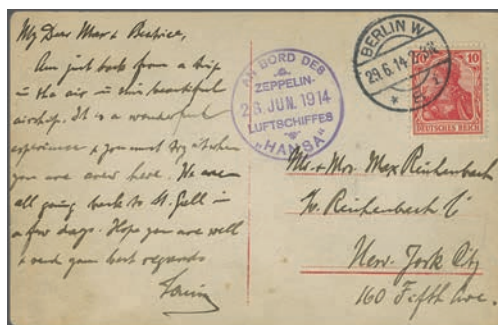 My Dear Max + Beatrice,
Am just back from a trip
in the air in this beautiful
airship. It is a wonderful
experience + you must try it when
you are over here. We are
all going back to St. Gall in
a few days. Hope you are well
+ send you best regards
AN BORD DES
ZEPPELIN-
28. JUN. 1914
LUFTSCHIFFES
"HANSA"
BERLIN W
29.6.14
10 10
DEUTSCHES REICH
Mr. + Mrs. Max Reichenbach
Reichenbach
New-York City
160 Fifth Ave.